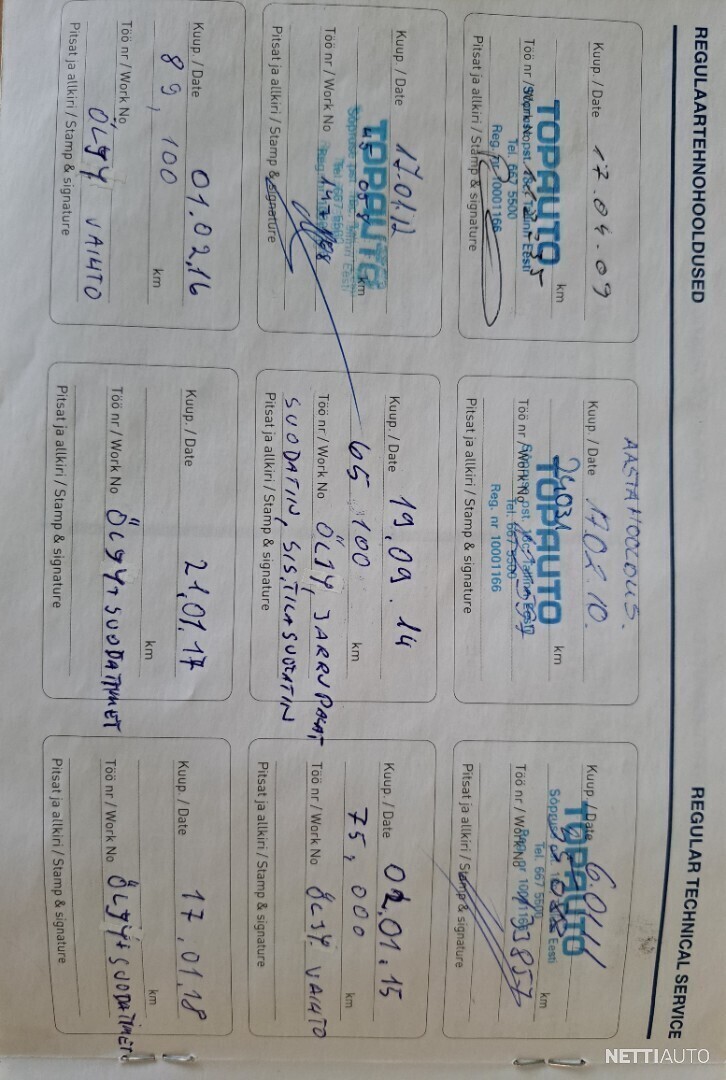 REGULAARTEHNOHOOLDUSED
REGULAR TECHNICAL SERVICE
Kuup. / Date 17.04.09
TOPAUTO
km
Töö nr / Work No
Tel. 667 5500
Reg. nr 10001166
Pitsat ja allkiri / Stamp & signature
AASTAHOOLDUS.
Kuup. / Date 17.02.10.
24031
TOPAUTO
km
Töö nr / Work No
Tel. 667 5500
Reg. nr 10001166
Pitsat ja allkiri / Stamp & signature
Kuup. / Date
TOPAUTO
Tel. 667 5500
km
Töö nr / Work No 133857
Pitsat ja allkiri / Stamp & signature
Kuup. / Date 17.01.12
TOPAUTO
km
Töö nr / Work No
Pitsat ja allkiri / Stamp & signature
Kuup. / Date 19.09.14
65 100 km
Töö nr / Work No ÖLJY, JARRUPALAT,
SUODATIN, SIS.TILASUODATIN
Pitsat ja allkiri / Stamp & signature
Kuup. / Date 02.01.15
75,000 km
Töö nr / Work No ÖLJY VAIHTO
Pitsat ja allkiri / Stamp & signature
Kuup. / Date 01.02.16
89,100 km
Töö nr / Work No
ÖLJY VAIHTO
Pitsat ja allkiri / Stamp & signature
Kuup. / Date 21.01.17
km
Töö nr / Work No ÖLJY+SUODATTIMET
Pitsat ja allkiri / Stamp & signature
Kuup. / Date 17.01.18
km
Töö nr / Work No ÖLJY+SUODATTIMET
Pitsat ja allkiri / Stamp & signature
NETTIAUTO